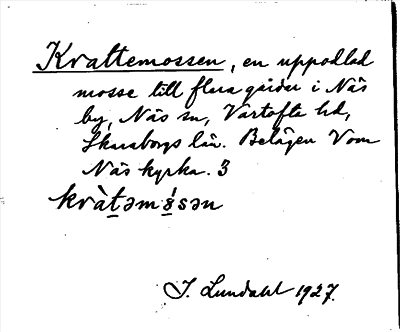 Krattemossen, en uppodlad
mosse till flera gårdar i Näs
by, Näs sn, Vartofta hd,
Skaraborgs län. Belägen V om
Näs kyrka. 3
kràt̲əmǿ̲sən
J. Lundahl 1927.